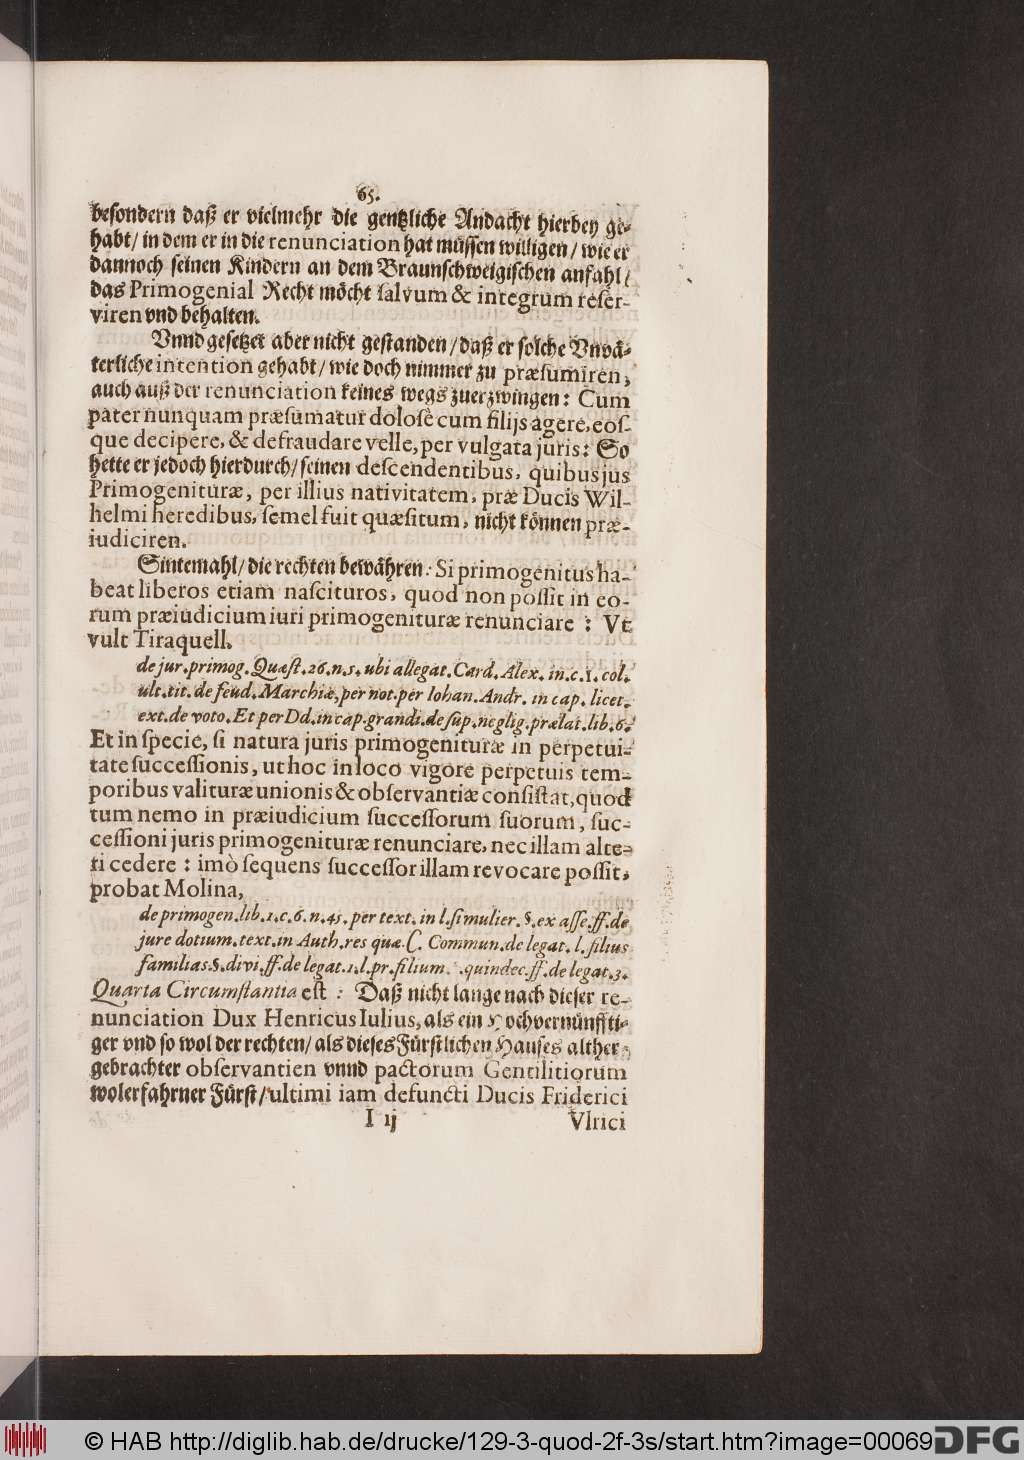 65.
besondern daß er vielmehr die gentzliche Andacht hierbey ge-
habt / in dem er in die renunciation hat müssen willigen / wie er
dannoch seinen Kindern an dem Braunschweigischen anfahl /
das Primogenial Recht möcht salvum & integrum reser-
viren vnd behalten.
Vnnd gesetzet aber nicht gestanden / daß er solche Vnvä-
terliche intention gehabt / wie doch nimmer zu præsumiren,
auch auß der renunciation keines wegs zuerzwingen: Cum
pater nunquam præsumatur dolosè cum filijs agere, eos-
que decipere, & defraudare velle, per vulgata juris: So
hette er jedoch hierdurch / seinen descendentibus, quibus jus
Primogenituræ, per illius nativitatem, præ Ducis Wil-
helmi heredibus, semel fuit quæsitum, nicht können præ-
iudiciren.
Sintemahl / die rechten bewähren: Si primogenitus ha-
beat liberos etiam nascituros, quod non possit in eo-
rum præiudicium iuri primogenituræ renunciare : Vt
vult Tiraquell.
de jur. primog. Quæst. 26. n. 5. ubi allegat. Card. Alex. in. c. 1. col.
ult. tit. de feud. Marchiæ, per not. per Iohan. Andr. in cap. licet.
ext. de voto. Et per Dd. in cap. grandi. de sup. neglig. prælat. lib. 6.
Et in specie, si natura juris primogenituræ in perpetui-
tate successionis, ut hoc in loco vigore perpetuis tem-
poribus valituræ unionis & observantiæ consistat, quod
tum nemo in præiudicium successorum suorum, suc-
cessioni juris primogenituræ renunciare, nec illam alte-
ti cedere : imò sequens successor illam revocare possit,
probat Molina,
de primogen. lib. 1. c. 6. n. 45. per text. in l. si mulier. §. ex asse. ff. de
jure dotium. text. in Auth. res quæ. C. Commun. de legat. l. filius
familias. §. divi. ff. de legat. 1. l. pr. filium. . quindec. ff. de legat. 3.
Quarta Circumstantia est : Daß nicht lange nach dieser re-
nunciation Dux Henricus Iulius, als ein Hochvernünffti-
ger vnd so wol der rechten / als dieses Fürstlichen Hauses alther-
gebrachter observantien vnnd pactorum Gentilitiorum
wolerfahrner Fürst / ultimi iam defuncti Ducis Friderici
I ij
Vlrici
© HAB http://diglib.hab.de/drucke/129-3-quod-2f-3s/start.htm?image=00069
DFG